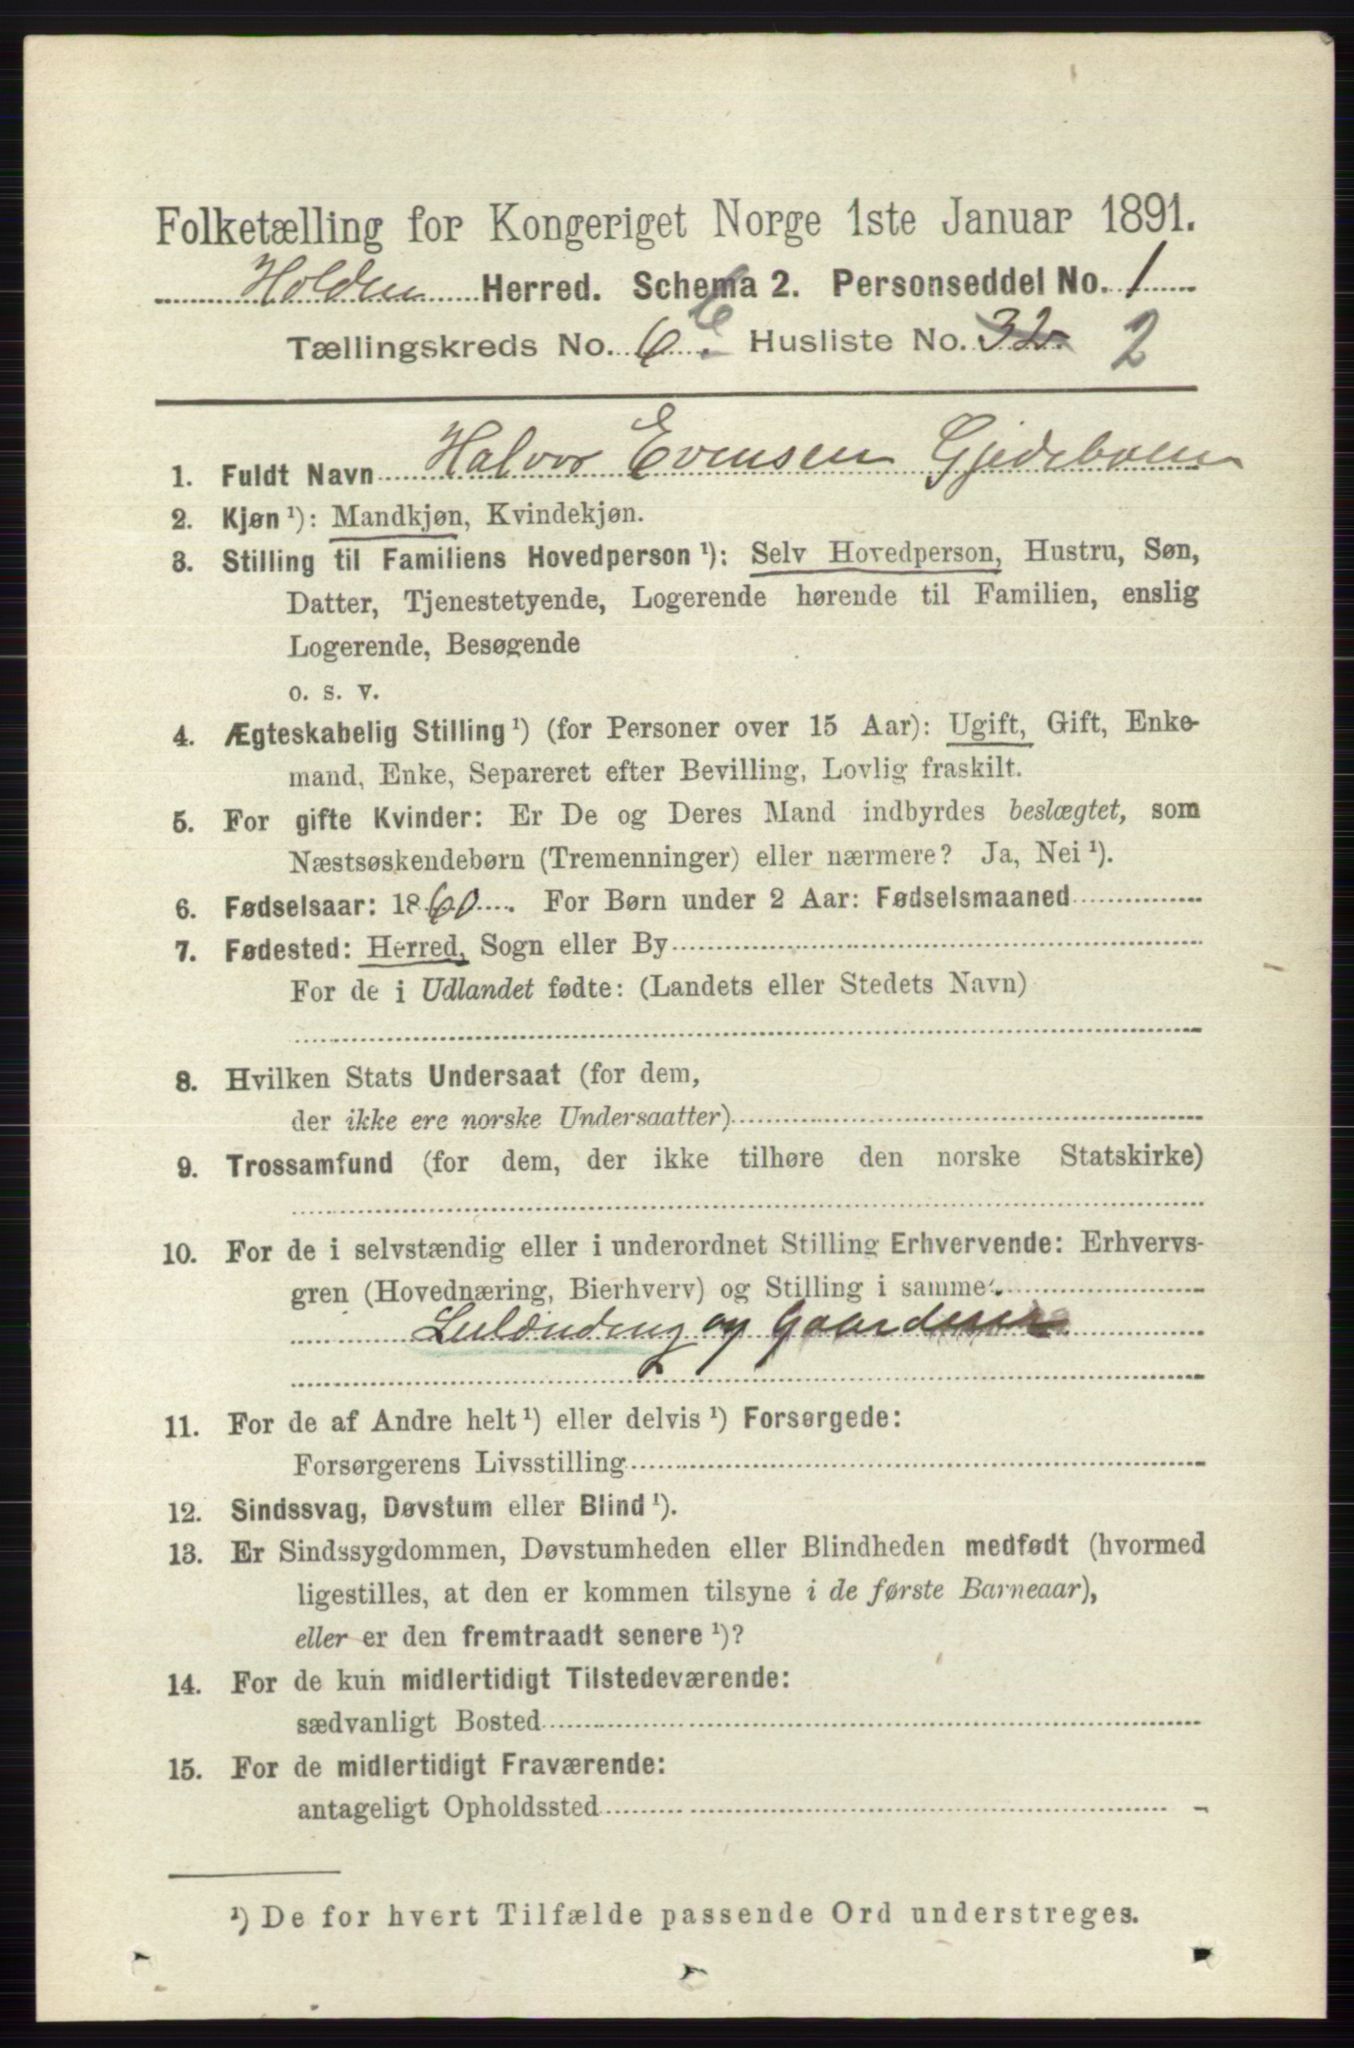 Folketælling for Kongeriget Norge 1ste Januar 1891.
Holden Herred. Schema 2. Personseddel No. 1
Tællingskreds No. 6 Husliste No. 32 2
1. Fuldt Navn Halvor Evensen Gjedeboen
2. Kjøn ¹): Mandkjøn, Kvindekjøn.
3. Stilling til Familiens Hovedperson ¹): Selv Hovedperson, Hustru, Søn,
Datter, Tjenestetyende, Logerende hørende til Familien, enslig
Logerende, Besøgende
o. s. v.
4. Ægteskabelig Stilling ¹) (for Personer over 15 Aar): Ugift, Gift, Enke-
mand, Enke, Separeret efter Bevilling, Lovlig fraskilt.
5. For gifte Kvinder: Er De og Deres Mand indbyrdes beslægtet, som
Næstsøskendebørn (Tremenninger) eller nærmere? Ja, Nei ¹).
6. Fødselsaar: 1860. For Børn under 2 Aar: Fødselsmaaned
7. Fødested: Herred, Sogn eller By
For de i Udlandet fødte: (Landets eller Stedets Navn)
8. Hvilken Stats Undersaat (for dem,
der ikke ere norske Undersaatter)
9. Trossamfund (for dem, der ikke tilhøre den norske Statskirke)
10. For de i selvstændig eller i underordnet Stilling Erhvervende: Erhvervs-
gren (Hovednæring, Bierhverv) og Stilling i samme.
Lulænding og
11. For de af Andre helt ¹) eller delvis ¹) Forsørgede:
Forsørgerens Livsstilling
12. Sindssvag, Døvstum eller Blind ¹).
13. Er Sindssygdommen, Døvstumheden eller Blindheden medfødt (hvormed
ligestilles, at den er kommen tilsyne i de første Barneaar),
eller er den fremtraadt senere ¹)?
14. For de kun midlertidigt Tilstedeværende:
sædvanligt Bosted
15. For de midlertidigt Fraværende:
antageligt Opholdssted
¹) De for hvert Tilfælde passende Ord understreges.